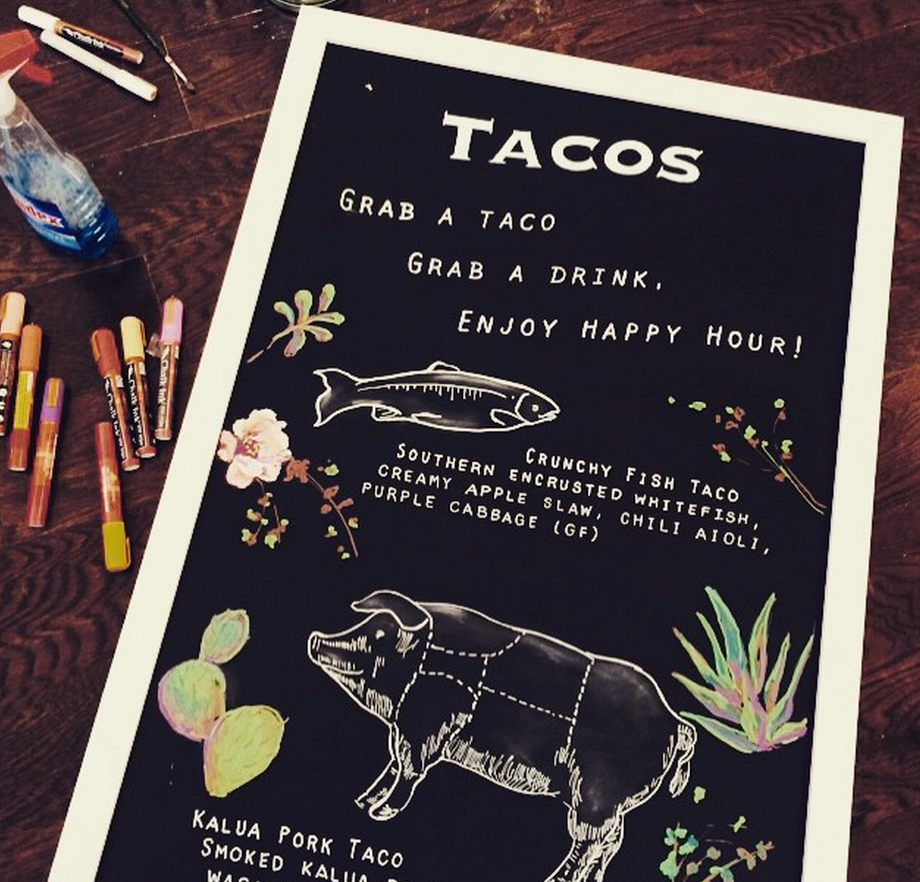 TACOS
GRAB A TACO
GRAB A DRINK,
ENJOY HAPPY HOUR!
CRUNCHY FISH TACO
SOUTHERN ENCRUSTED WHITEFISH,
CREAMY APPLE SLAW, CHILI AIOLI,
PURPLE CABBAGE (GF)
KALUA PORK TACO
SMOKED KALUA
Chalk Ink
Chalk Ink
Chalk Ink
Chalk Ink